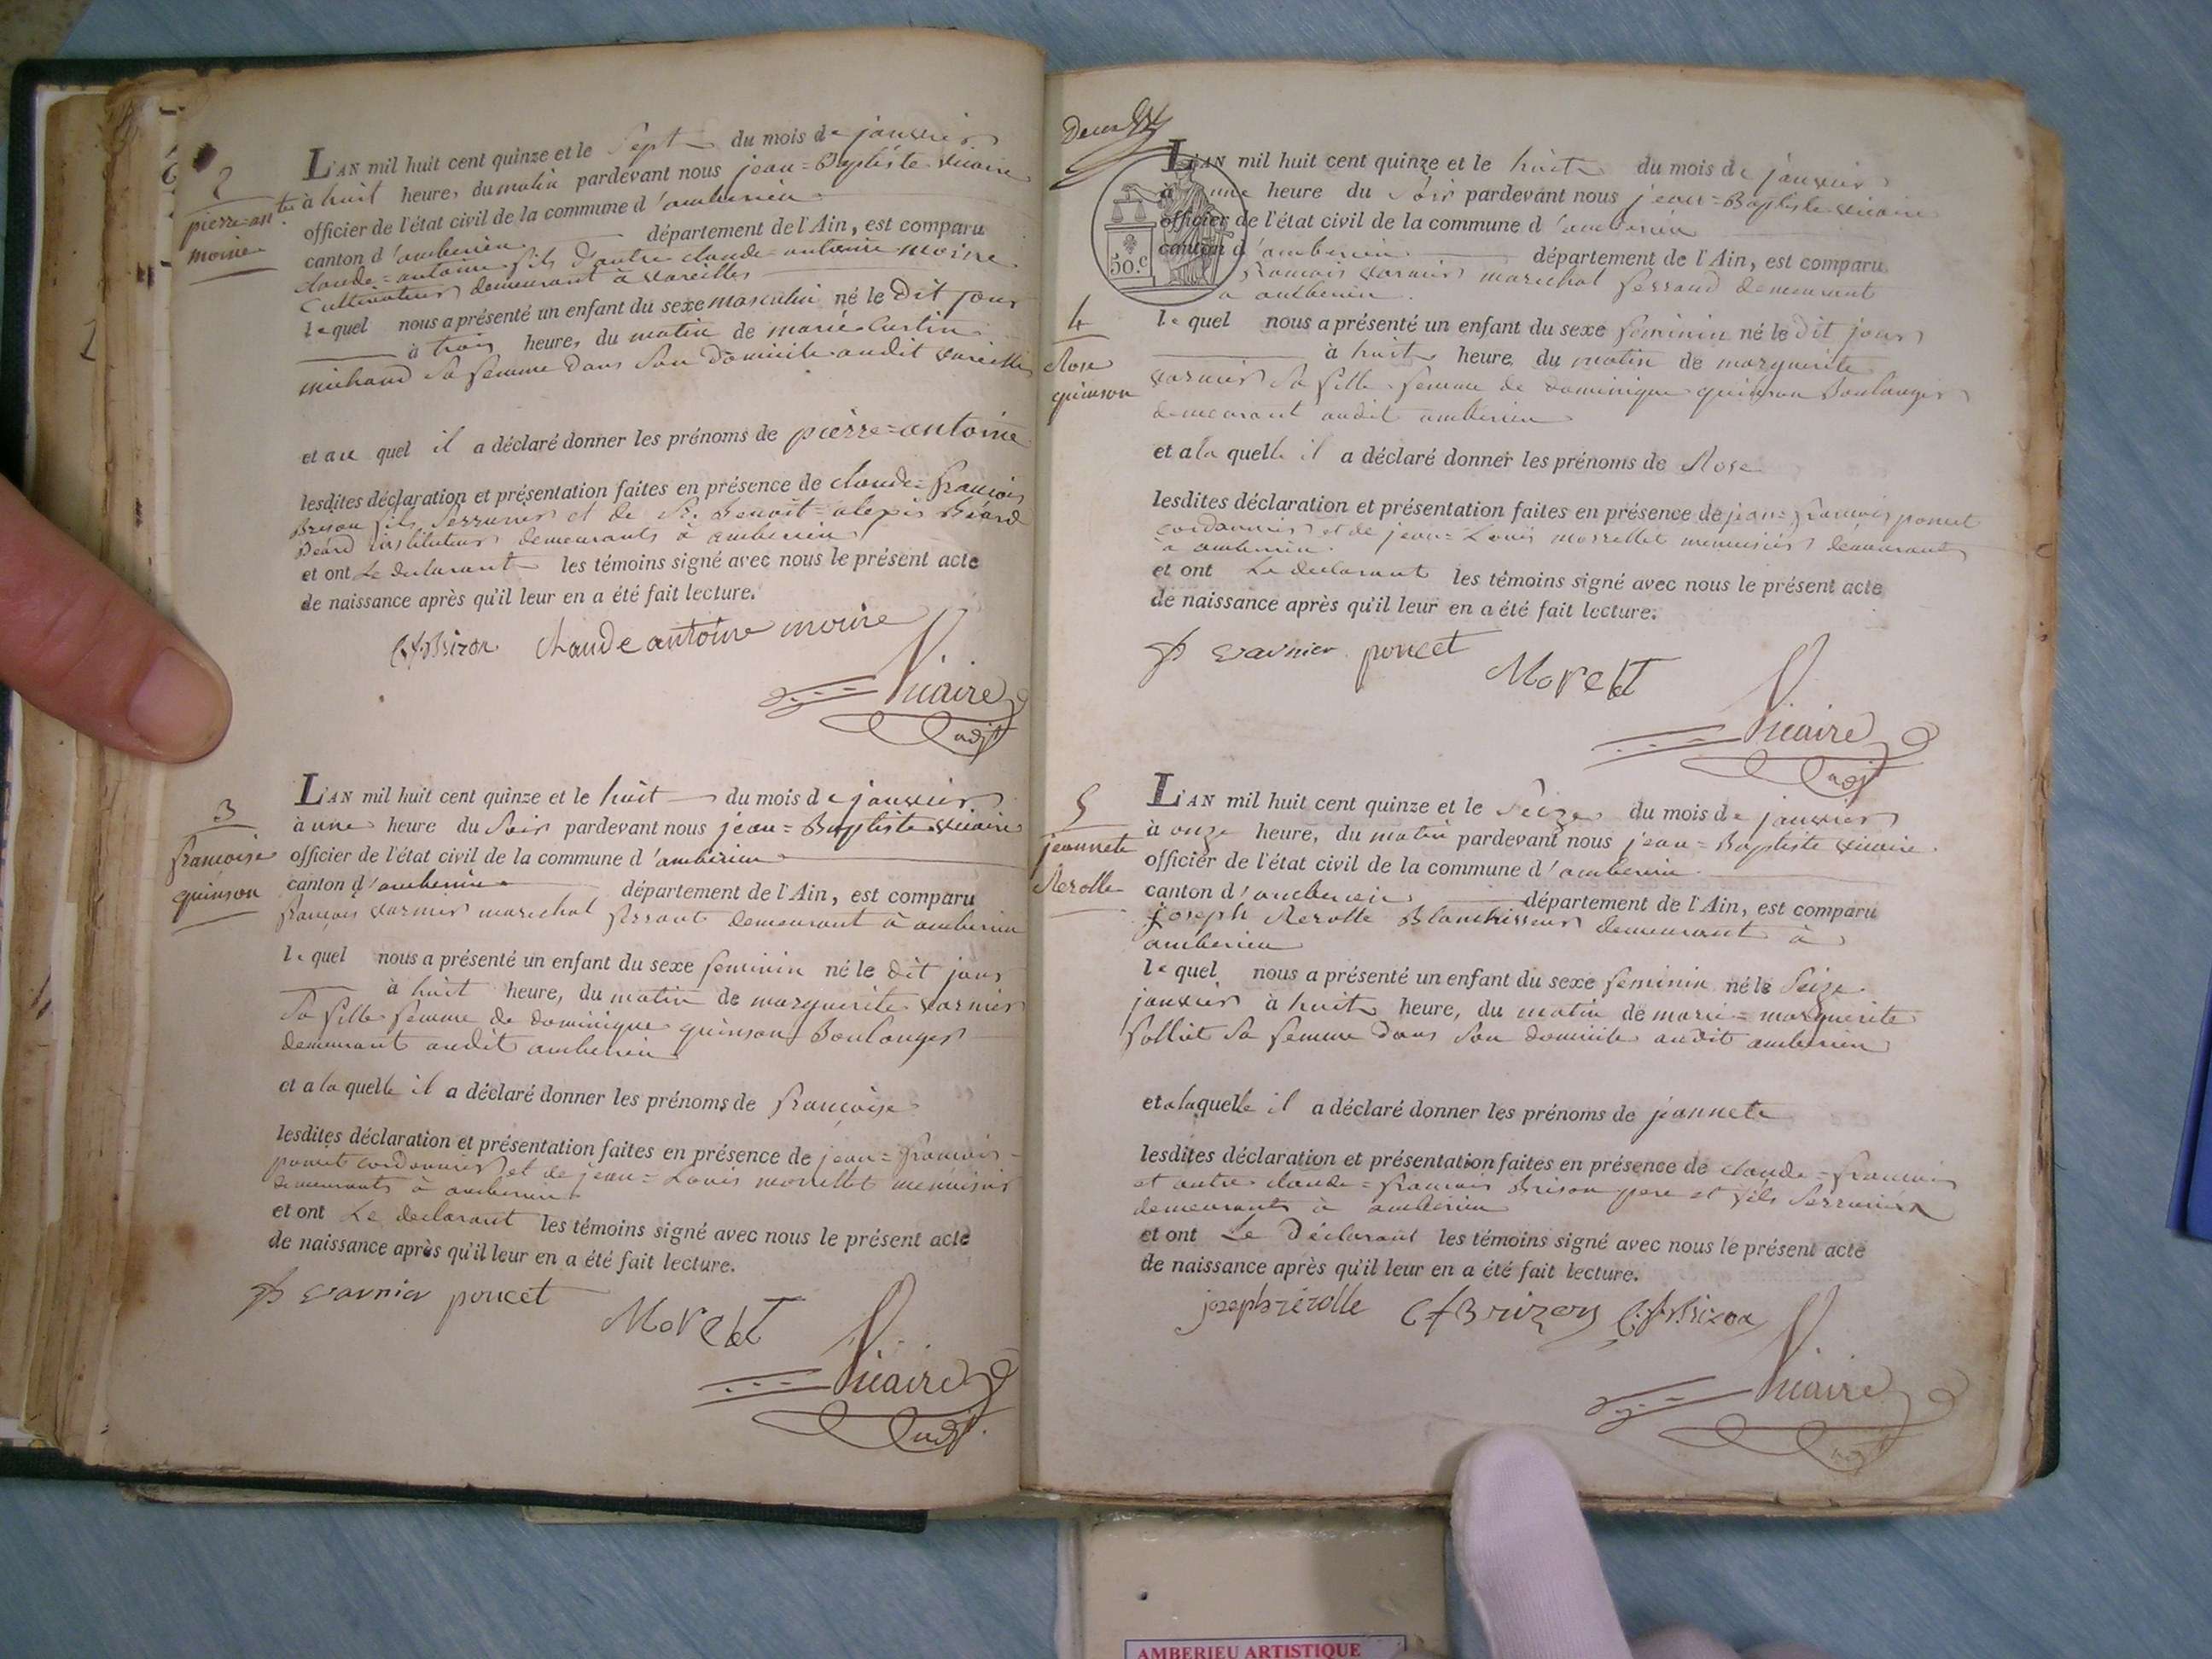 2
pierre=ant.ne
moine
L'AN mil huit cent quinze et le Sept du mois de janvier
à huit heures du matin pardevant nous jean=Baptiste vicaire
officier de l'état civil de la commune d'amberieu
canton d'amberieu département de l'Ain, est comparu
claude=antoine fils d'autre claude=antoine moine
Cultivateur demeurant à vareilles
lequel nous a présenté un enfant du sexe masculin né le dit jour
à trois heures du matin de marie Curtin
michaud Sa femme dans Son Domicile audit vareilles
et au quel il a déclaré donner les prénoms de pierre=antoine
lesdites déclaration et présentation faites en présence de claude=francois
Brison fils Serrurier et de Sr. Benoit=alexis Béard
Béard instituteur demeurants à amberieu
et ont Le declarant les témoins signé avec nous le présent acte
de naissance après qu'il leur en a été fait lecture.
C.f.Brizon claude antoine moine
Vicaire
adjt
3
francoise
quinson
L'AN mil huit cent quinze et le huit du mois de janvier
à une heure du Soir pardevant nous jean=Baptiste vicaire
officier de l'état civil de la commune d'amberieu
canton d'amberieu département de l'Ain, est comparu
françois varnier marechal ferrant demeurant à amberieu
lequel nous a présenté un enfant du sexe feminin né le dit jour
à huit heure, du matin de marguerite varnier
Sa fille femme de dominique quinson Boulanger
demeurant audit amberieu
et a la quelle il a déclaré donner les prénoms de francoise
lesdites déclaration et présentation faites en présence de jean=francois
poncet cordonnier et de jean=Louis morellet menuisier
demeurants à amberieu
et ont Le declarant les témoins signé avec nous le présent acte
de naissance après qu'il leur en a été fait lecture.
varnier poncet
Morelet
Vicaire
adjt
Deux
50.c
L'AN mil huit cent quinze et le huit du mois de janvier
à une heure du Soir pardevant nous jean=Baptiste vicaire
officier de l'état civil de la commune d'amberieu
canton d'amberieu département de l'Ain, est comparu
francois varnier marechal ferrand demeurant
a amberieu.
4
Rose
quinson
lequel nous a présenté un enfant du sexe feminin né le dit jour
à huit heure, du matin de marguerite
varnier Sa fille femme de dominique quinson Boulanger
demeurant audit amberieu
et a la quelle il a déclaré donner les prénoms de Rose
lesdites déclaration et présentation faites en présence de jean=francois poncet
cordonnier et de jean=Louis morrellet menuisier demeurants
à amberieu.
et ont Le declarant les témoins signé avec nous le présent acte
de naissance après qu'il leur en a été fait lecture.
varnier poncet
Morelet
Vicaire
adjt
5
jeannete
Rerolle
L'AN mil huit cent quinze et le Seize du mois de janvier
à onze heure, du matin pardevant nous jean=Baptiste vicaire
officier de l'état civil de la commune d'amberieu
canton d'amberieu département de l'Ain, est comparu
joseph Rerolle Blanchisseur demeurant à
amberieu
lequel nous a présenté un enfant du sexe feminin né le Seize
janvier à huit heure, du matin de marie=marguerite
Solliet Sa femme dans Son domicile audit amberieu
et a laquelle il a déclaré donner les prénoms de jeannete
lesdites déclaration et présentation faites en présence de claude=francois
et autre claude=francois Brison pere et fils Serruriers
demeurants à amberieu
et ont Le Déclarant les témoins signé avec nous le présent acte
de naissance après qu'il leur en a été fait lecture.
joseph rérolle C f Brizon C.f.Brizon
Vicaire
adjt
AMBERIEU ARTISTIQUE